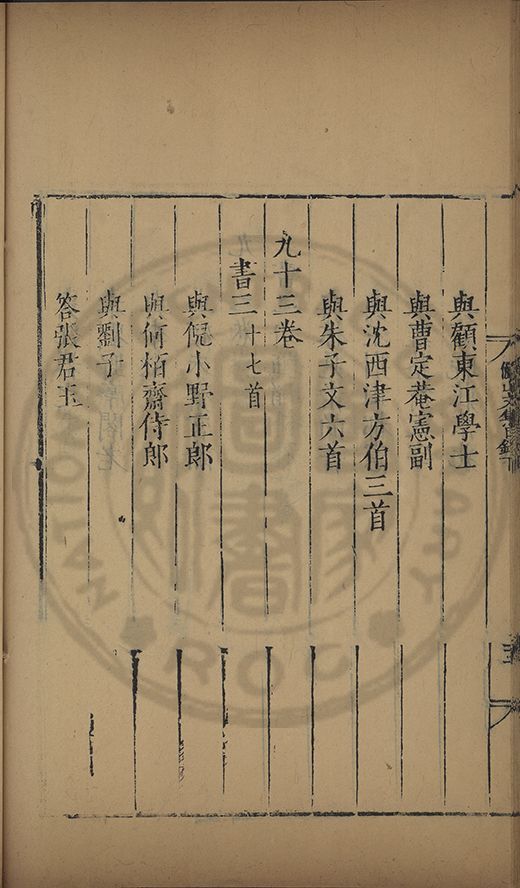 與顧東江學士
與曹定菴憲副
與沈西津方伯三首
與朱子文六首
九十三卷
書三 十七首
與倪小野正郎
與何栢齋侍郎
與劉子
答張君玉